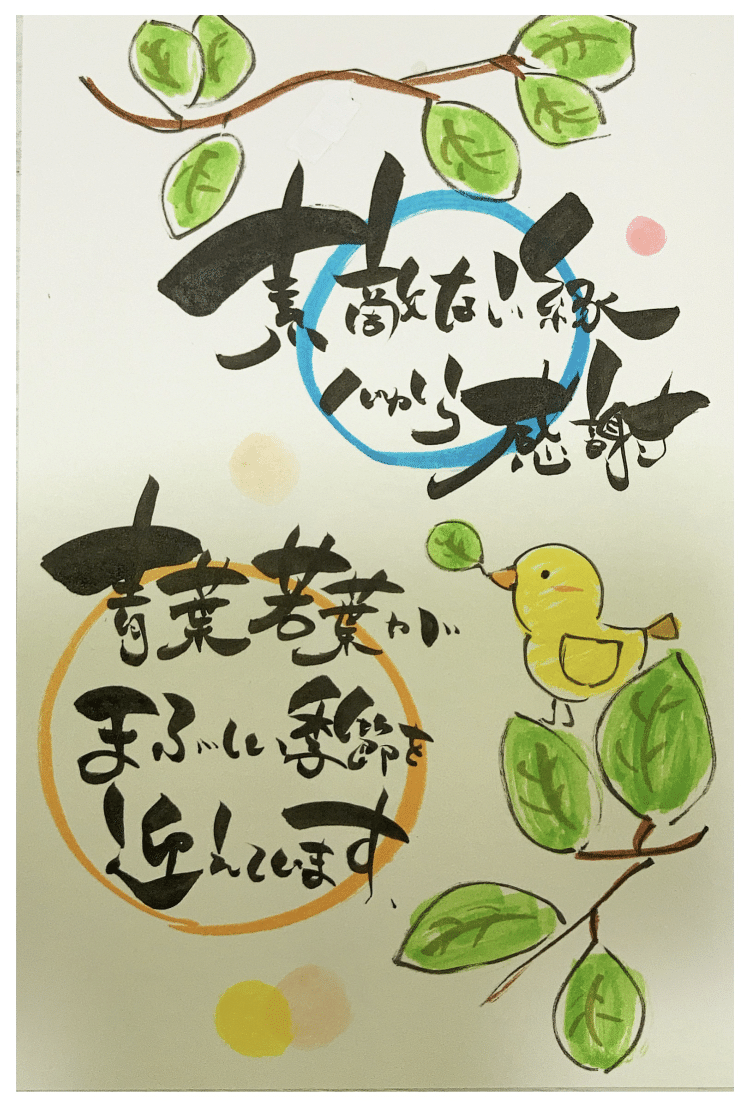 素敵ない縁
心から感謝
青葉若葉が
まぶしい季節を
迎えています、